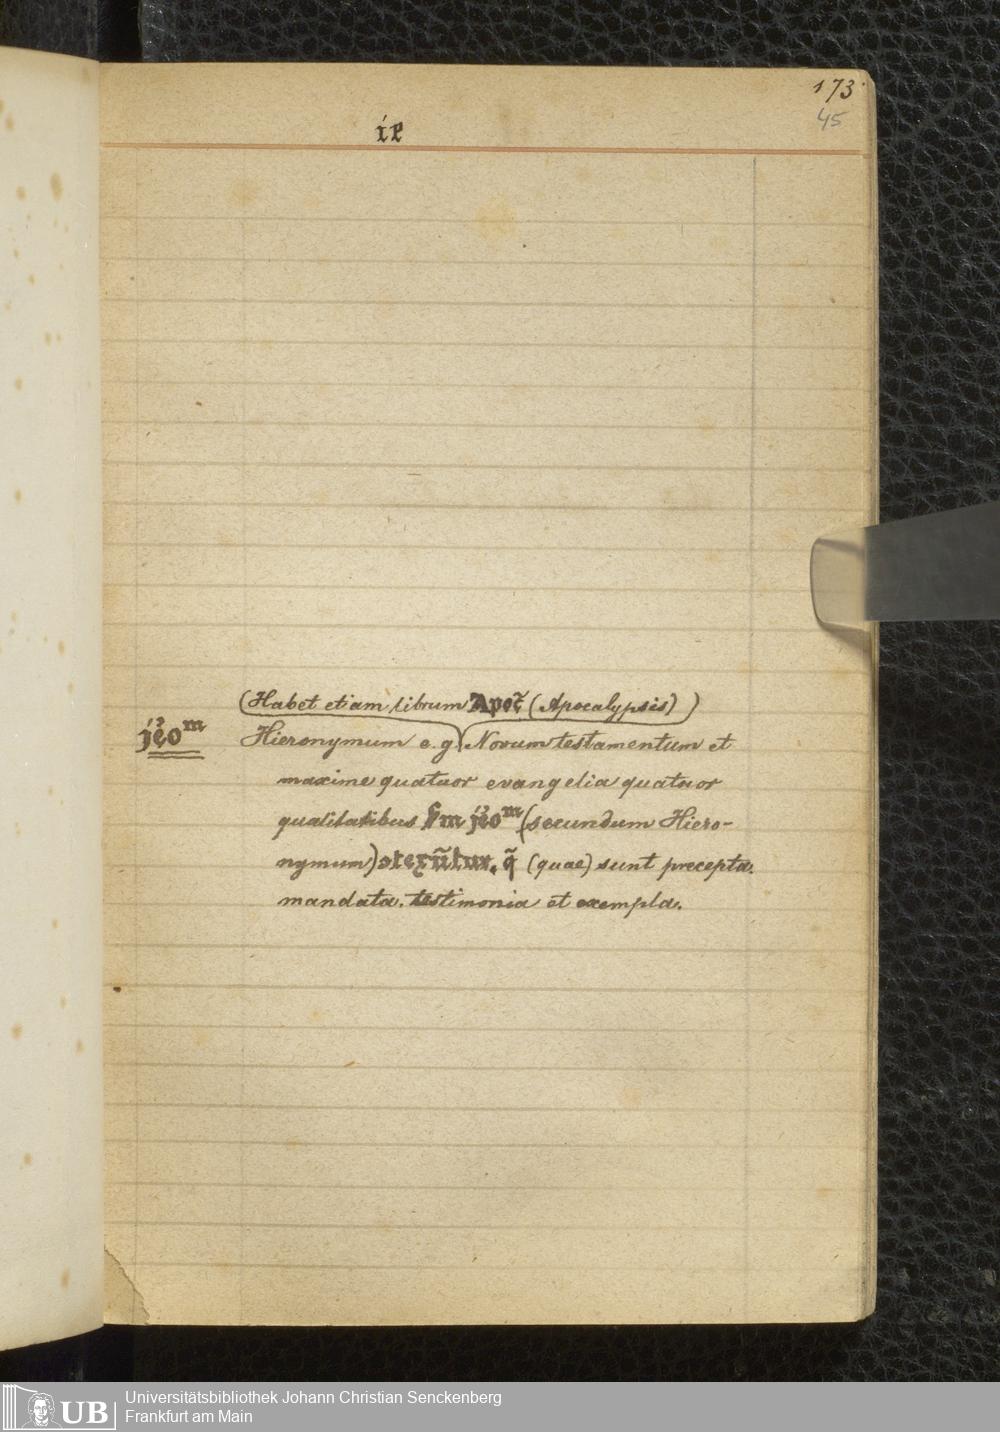 173
45
ie
(Habet etiam librum Apoc̃ (Apocalypsis))
jẽoᵐ Hieronymum e.g. Novum testamentum et
maxime quatuor evangelia quatuor
qualitatibus sm jẽoᵐ (secundum Hiero-
nymum) q̃ (quae) sunt precepta.
mandata. testimonia et exempla.
UB
Universitätsbibliothek Johann Christian Senckenberg
Frankfurt am Main